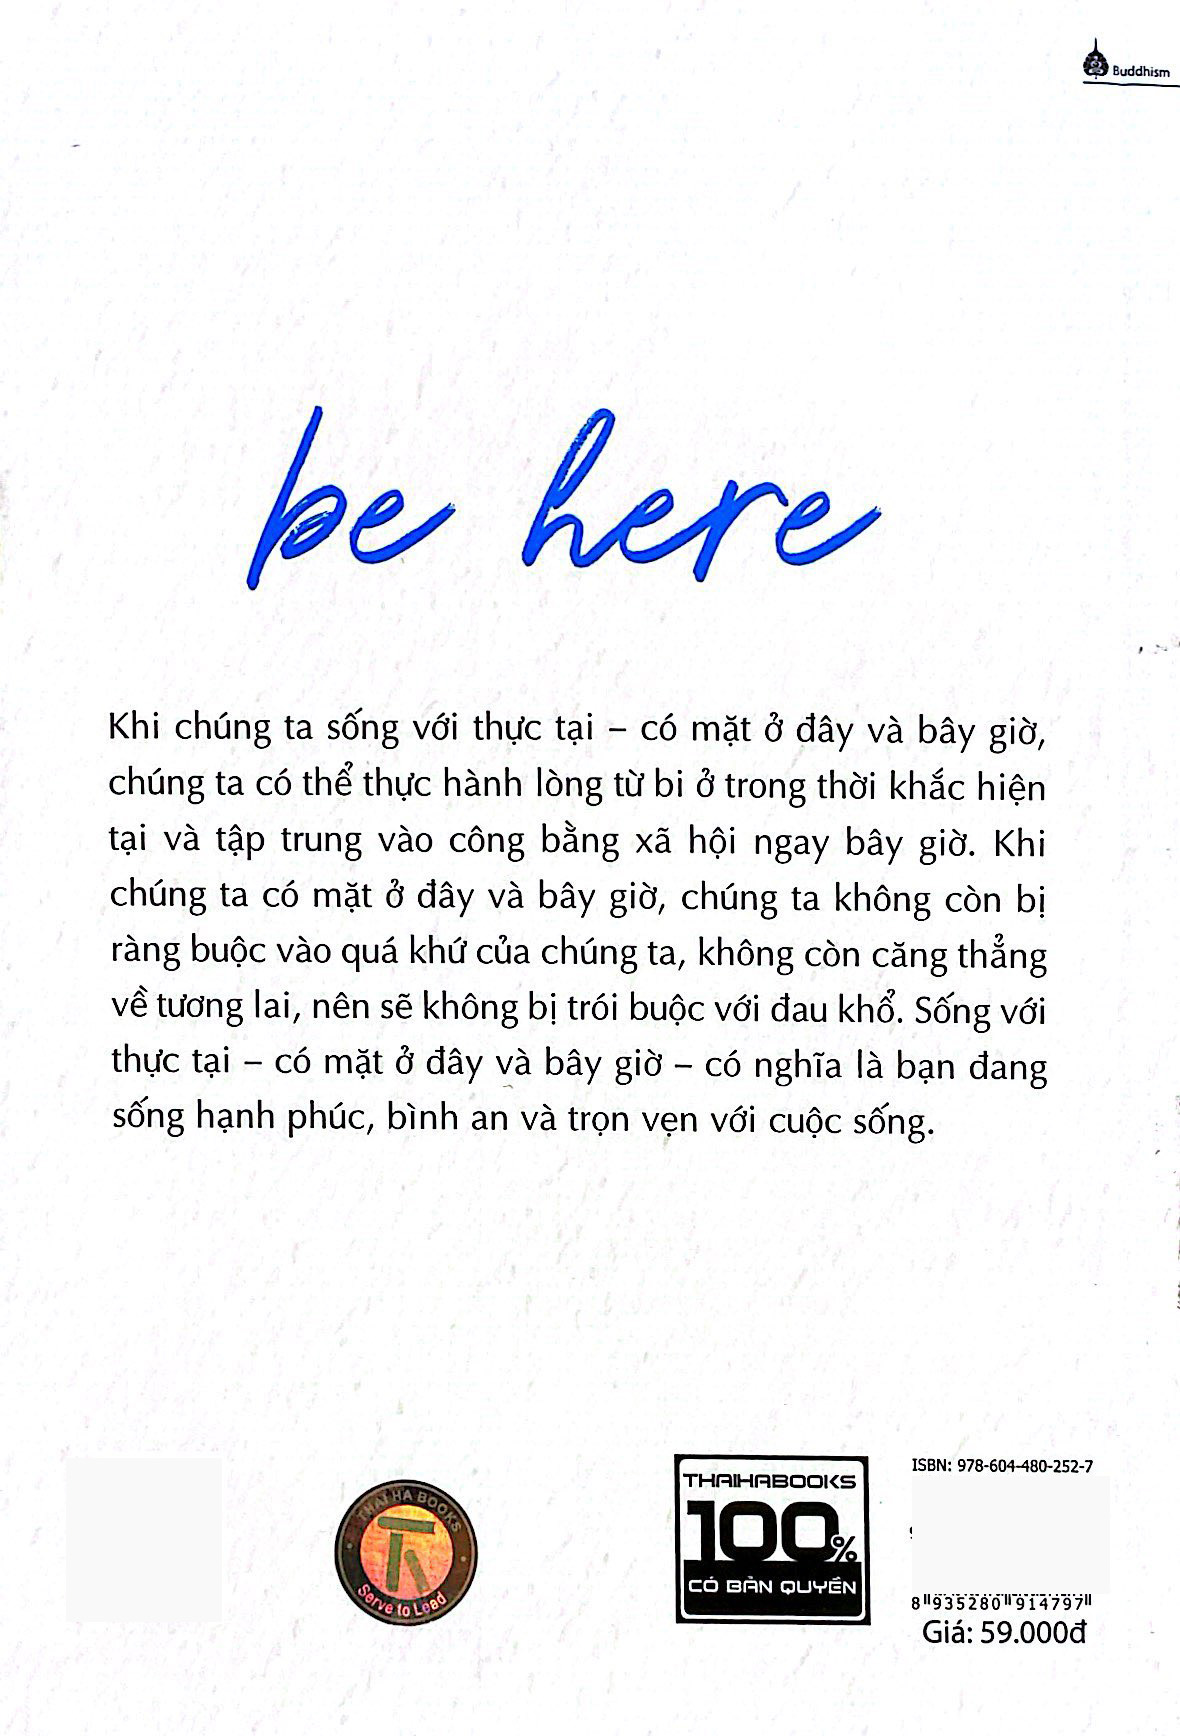 Buddhism
be here
Khi chúng ta sống với thực tại – có mặt ở đây và bây giờ,
chúng ta có thể thực hành lòng từ bi ở trong thời khắc hiện
tại và tập trung vào công bằng xã hội ngay bây giờ. Khi
chúng ta có mặt ở đây và bây giờ, chúng ta không còn bị
ràng buộc vào quá khứ của chúng ta, không còn căng thẳng
về tương lai, nên sẽ không bị trói buộc với đau khổ. Sống với
thực tại – có mặt ở đây và bây giờ – có nghĩa là bạn đang
sống hạnh phúc, bình an và trọn vẹn với cuộc sống.
THAI HA BOOKS
Serve to Lead
THAIHABOOKS
100%
CÓ BẢN QUYỀN
ISBN: 978-604-480-252-7
8 935280 914797
Giá: 59.000đ